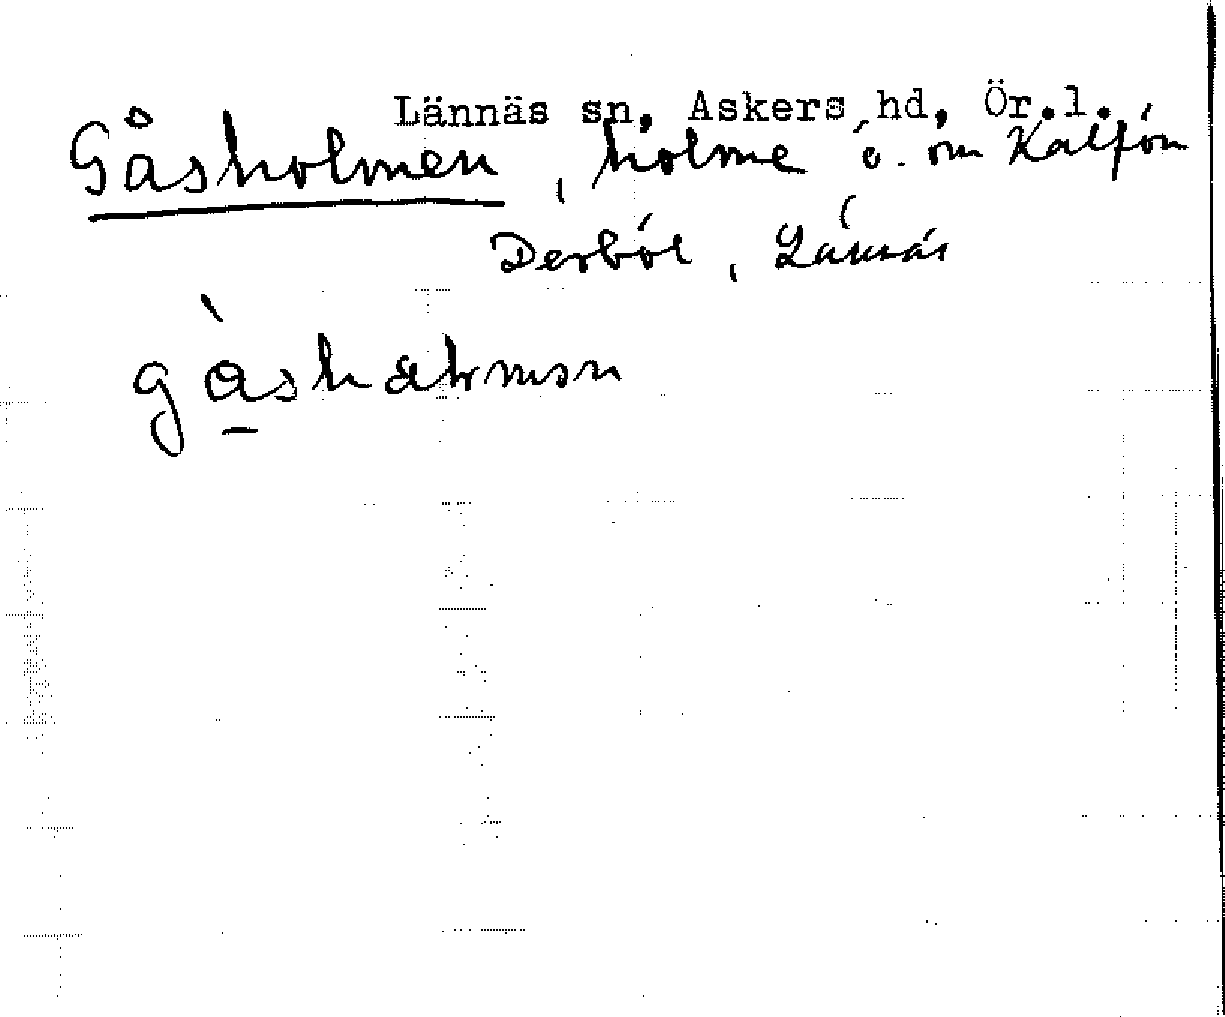 Lännäs sn, Askers hd, Ör.l.
Gåsholmen, holme ö. om Kalfön
Derböl, Lännäs
gåshalmən